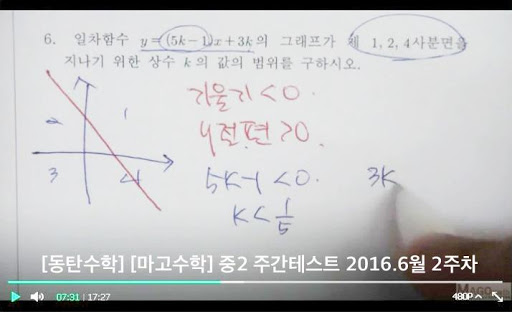 6. 일차함수 y=(5k-1)x+3k의 그래프가 제 1, 2, 4사분면을
지나기 위한 상수 k의 값의 범위를 구하시오.
기울기<0.
y절편>0.
2 1
3 4
5k-1<0. 3k
k<1/5
[동탄수학] [마고수학] 중2 주간테스트 2016.6월 2주차
07:31 | 17:27 480P